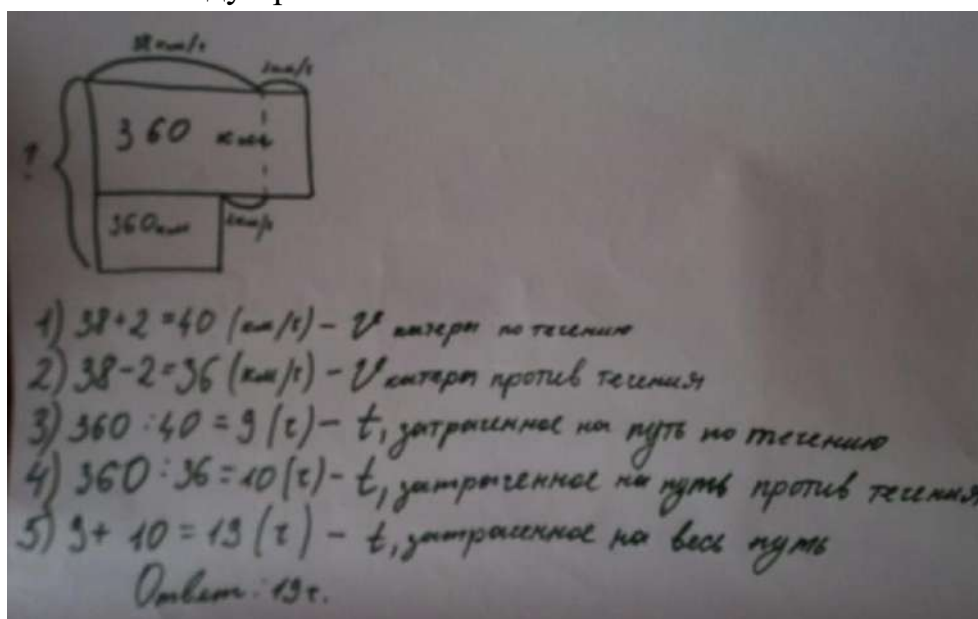 38 км/ч
2 км/ч
360 км
?
360 км
2 км/ч
1) 38+2=40 (км/ч) – V катера по течению
2) 38-2=36 (км/ч) – V катера против течения
3) 360:40=9 (ч) – t, затраченное на путь по течению
4) 360:36=10 (ч) – t, затраченное на путь против течения
5) 9+10=19 (ч) – t, затраченное на весь путь
Ответ: 19 ч.